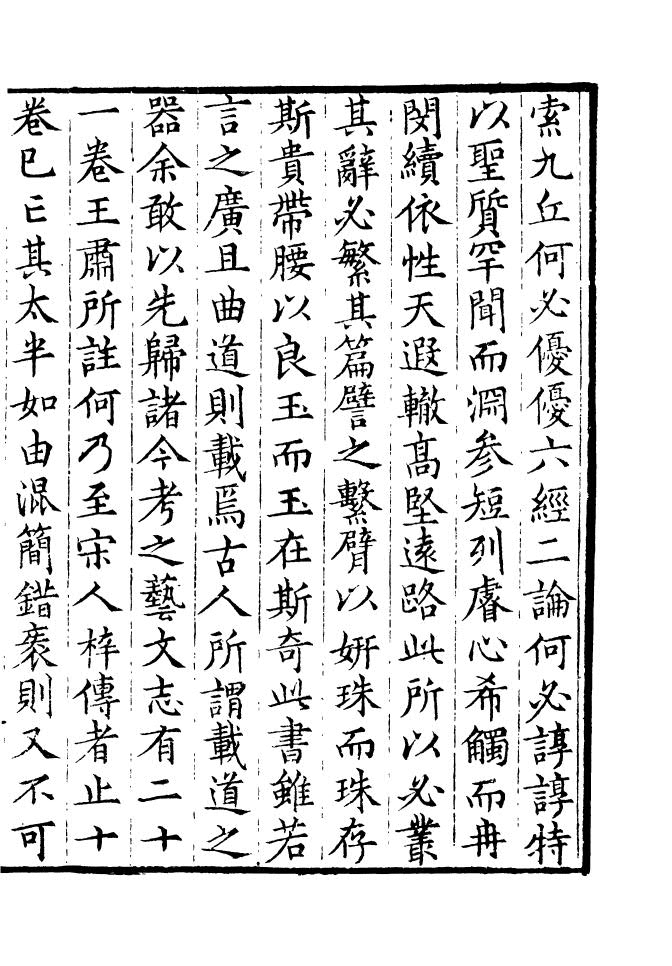 索九丘何必優優六經二論何必諄諄特
以聖質罕聞而淵參短列睿心希觸而冉
閔續依性天遐轍高堅遠路此所以必叢
其辭必繁其篇譬之繫臂以妍珠而珠存
斯貴帶腰以良玉而玉在斯奇此書雖若
言之廣且曲道則載焉古人所謂載道之
器余敢以先歸諸今考之藝文志有二十
一卷王肅所註何乃至宋人梓傳者止十
卷已亡其太半如由混簡錯袠則又不可